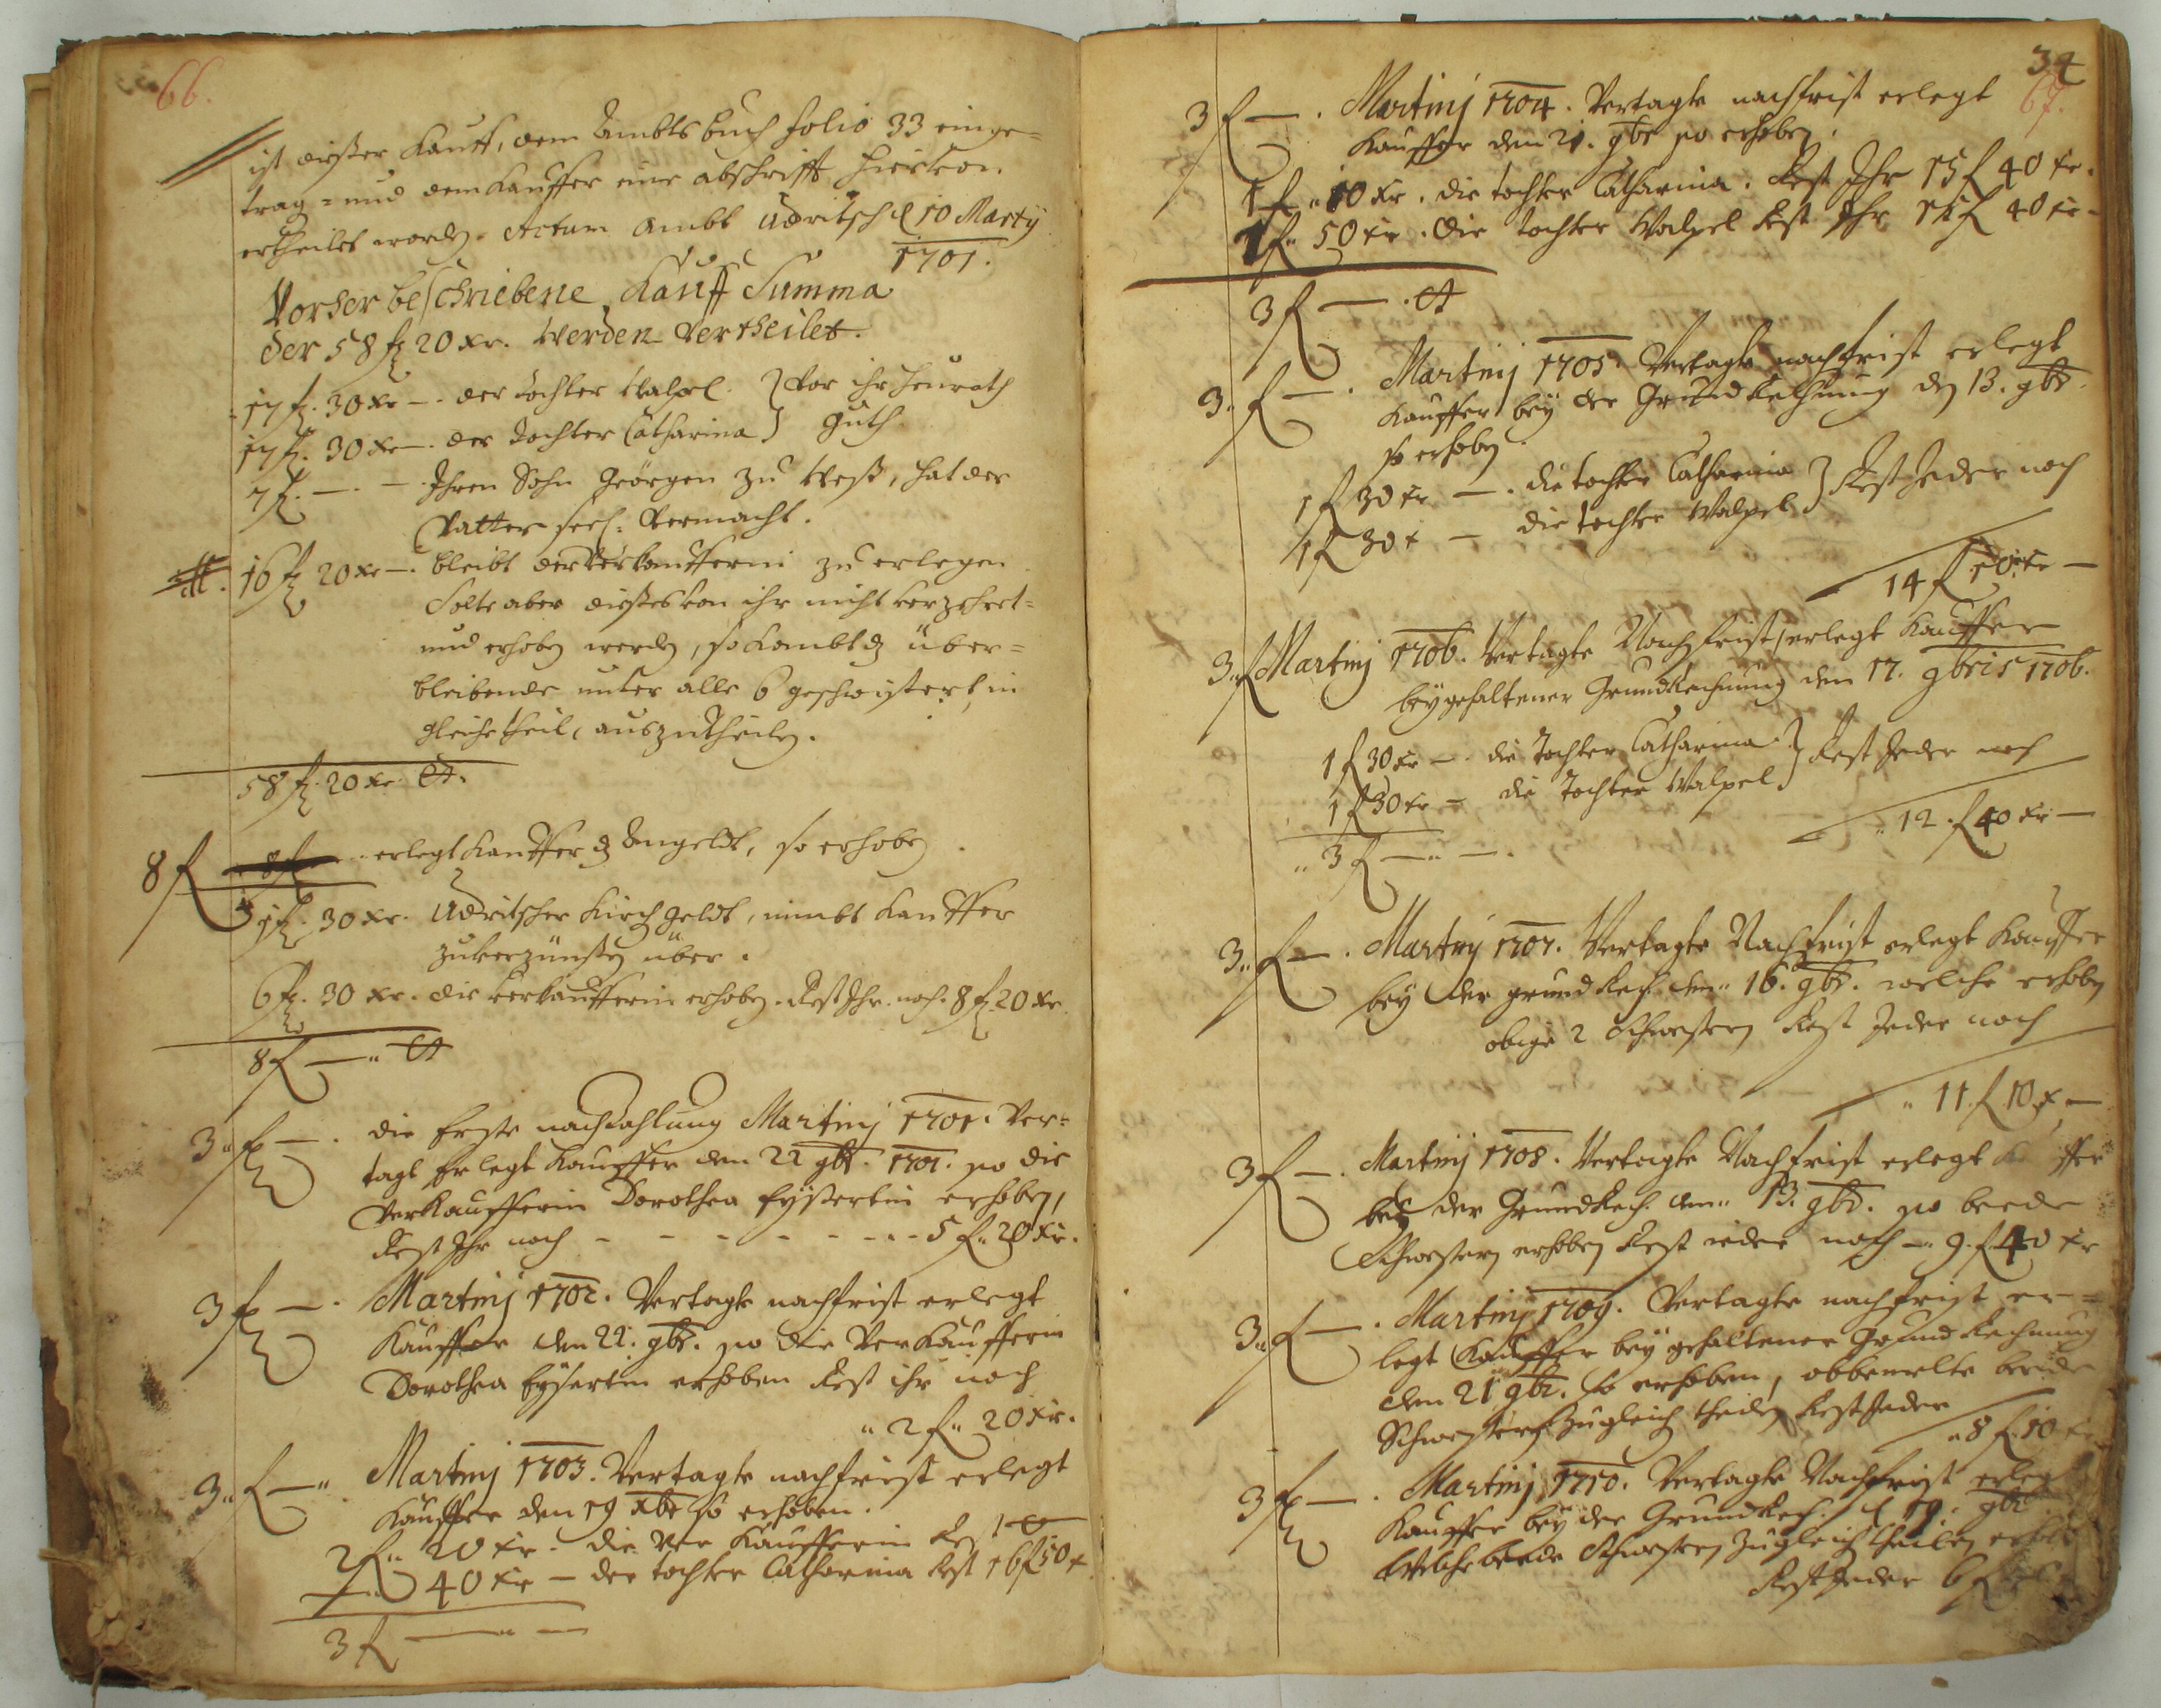 66.
ist dießer Kauff, dem Ambts buch folio 33 einge=
trag= und dem Kauffer eine abschrifft hiervon
ertheilet worden. Actum Ambt Udritsch d 10 Martij
1701.
Vorher beschriebene Kauff Summa
der 58 f 20 xr. werden vertheilet.
17 f. 30 xr —. der tochter Walpel. } Vor ihr heurath
17 f. 30 xr —. der tochter Catharina } guth.
7 f. — . — Ihren Sohn Geörgen zu, hat der
Vatter seel: Vermacht.
16 f 20 xr —. bleibt der Verkaufferin zu erlegen
Solte aber dießes von ihr nicht verzehrt=
und erhoben werden, so kombt dz über=
bleibende unter alle 6 geschwistert, in
gleiche theil, auszutheilen.
58 f. 20 xr. et.
8 f erlegt Kauffer dz Angeldt, so erhoben
1 f. 30 xr. Udritscher Kirchgeldt, nimbt Kauffer
zuverzünßen über.
6 f. 30 xr. die Verkaufferin erhoben. Rest Ihr noch. 8 f 20 xr.
8 f — „ et
3 „ f — . die Erste nachzahlung Martinj 1701. Ver=
tagt Erlegt Kauffer den 22 9br. 1701. so die
Verkaufferin Dorothea Eysertin erhoben,
Rest Ihr noch - - - - - - - 5 f „ 20 xr.
3 f — . Martinj 1702. Vertagte nachfrist erlegt
Kauffer den 22. 9br. so die Verkaufferin
Dorothea Eysertin erhoben Rest ihr noch
„ 2 f „ 20 xr.
3 „ f — „ Martinj 1703. Vertagte nachfrist erlegt
Kauffer den 19 xbr so erhoben.
2 f „ 20 xr. die Verkaufferin Rest
— „ 40 xr — der tochter Catharina Rest 16 f 50 x.
3 f — „ —
34
67.
3 f — . Martinj 1704. Vertagte nachfrist erlegt
Kauffer den 21. 9br so erhoben.
1 f „ 10 xr. die tochter Catharina. Rest Ihr 15 f 40 xr.
1 f „ 50 xr. die tochter Walpel Rest Ihr 15 f 40 xr.
3 f — . et
3. f — . Martinj 1705. Vertagte nachfrist erlegt
Kauffer bey der Grund Rechnung den 13. 9br.
so erhoben.
1 f 30 xr — . die tochter Catharina } Rest Jeder noch
1 f 30 x — die tochter Walpel }
14 f 10 xr —
3 „ f Martinj 1706. Vertagte Nachfrist erlegt Kauffer
bey gehaltener GrundRechnung den 17. 9bris 1706.
1 f 30 xr — . die Tochter Catharina. } Rest Jeder noch
1 f 30 xr — die Tochter Walpel }
„ 12. f 40 xr —
„ 3 f — „ — .
3 „ f — . Martinj 1707. Vertagte Nachfrist erlegt Kauffer
bey der grund Rech. den „ 16. 9br. welche erhoben
obige 2 Schwestern Rest Jeder noch
„ 11. f 10 x —
3 f — . Martinij 1708. Vertagte Nachfrist erlegt Kauffer
bey der GrundRech. den „ 13. 9br. so beede
Schwestern erhoben Rest ieder noch — 9. f 40 xr
3 „ f — . Martinj 1709. Vertagte nachfrist er=
legt Kauffer bey gehaltener Grund Rechnung
den 21 9br. so erhoben, obbemelte beide
Schwestern zugleich theilen Rest Jeder
„ 8 f. 10
3 f — . Martinj 1710. Vertagte Nachfrist erleg
Kauffer bey der GrundRech. d 19. 9br
Welche beede Schwestern zugleich theilen
Rest Jeder 6 f